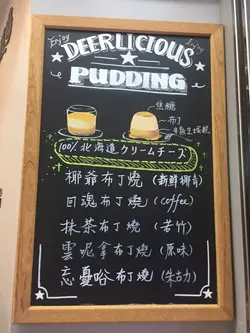 Enjoy
Enjoy
DEERLICIOUS
PUDDING
焦糖
布丁
100% 北海道クリームチーズ
椰爺布丁燒 (新鮮椰青)
回魂布丁燒 (coffee)
抹茶布丁燒 (若竹)
雲呢拿布丁燒 (原味)
忘憂谷布丁燒 (朱古力)